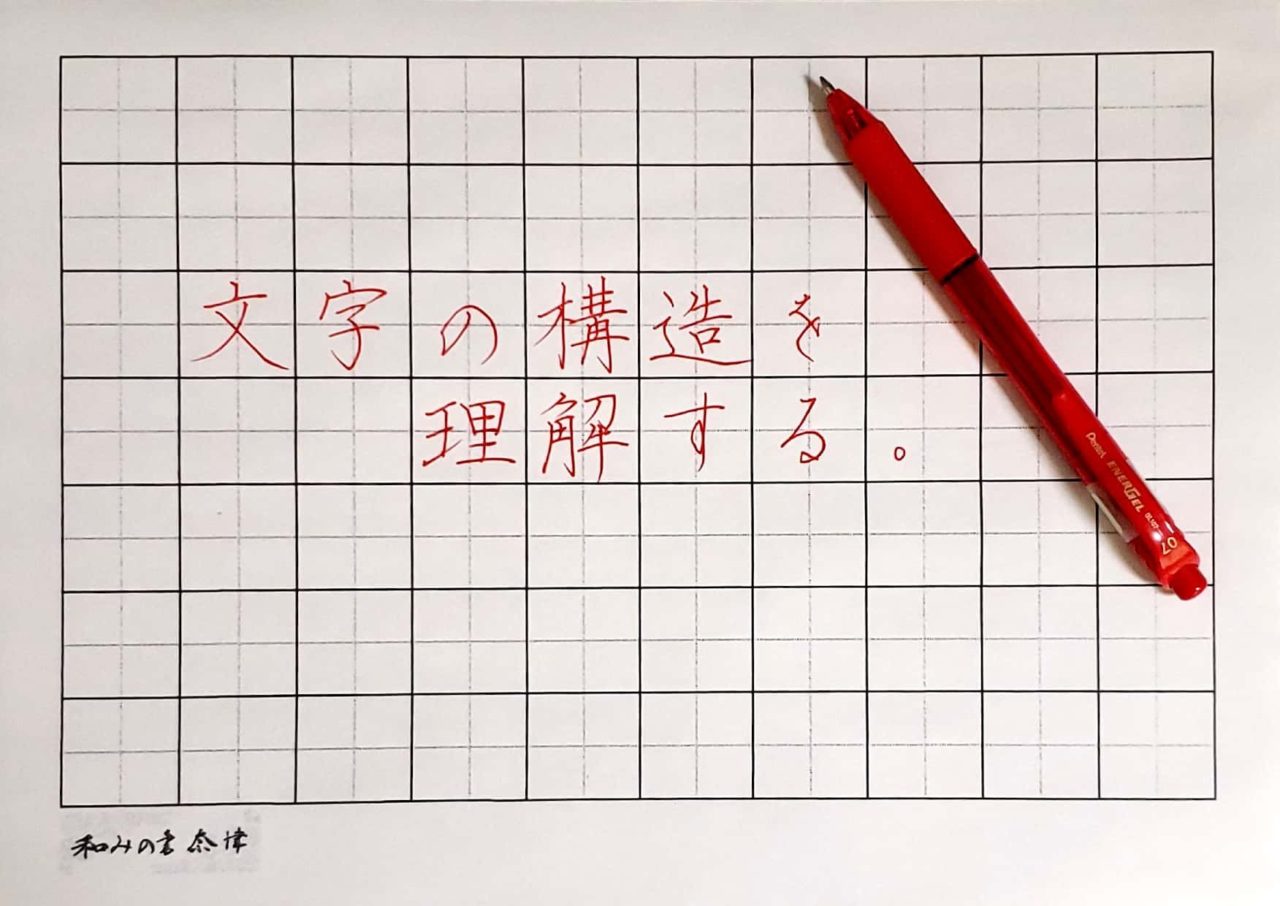 文字の構造を
理解する。
Pentel ENERGEL BL107
07
和みの書 奈偉